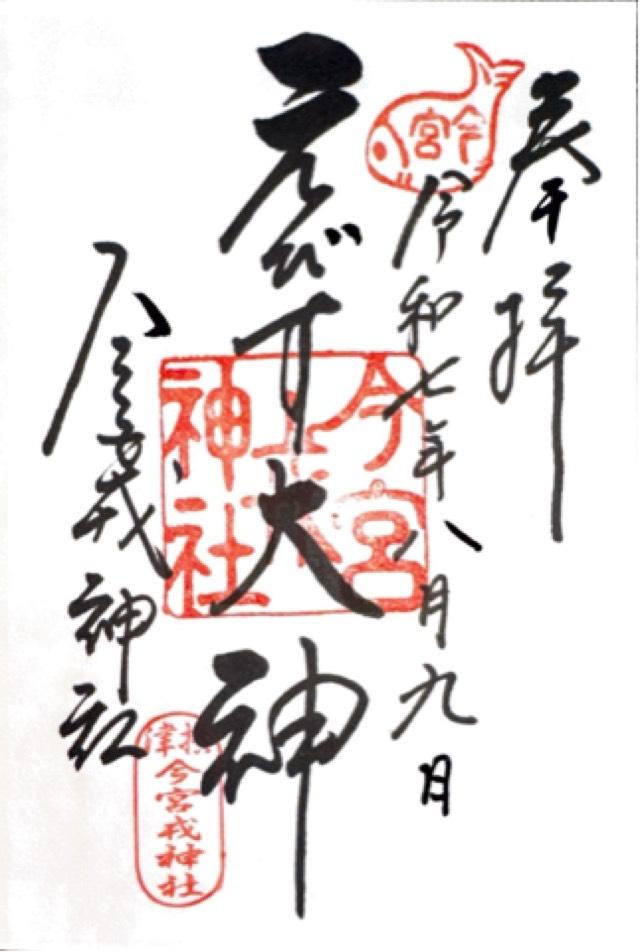 奉拝
今宮
令和七年八月九月
ゑびす大神
今宮戎神社
今宮戎神社
摂津
今宮戎神社